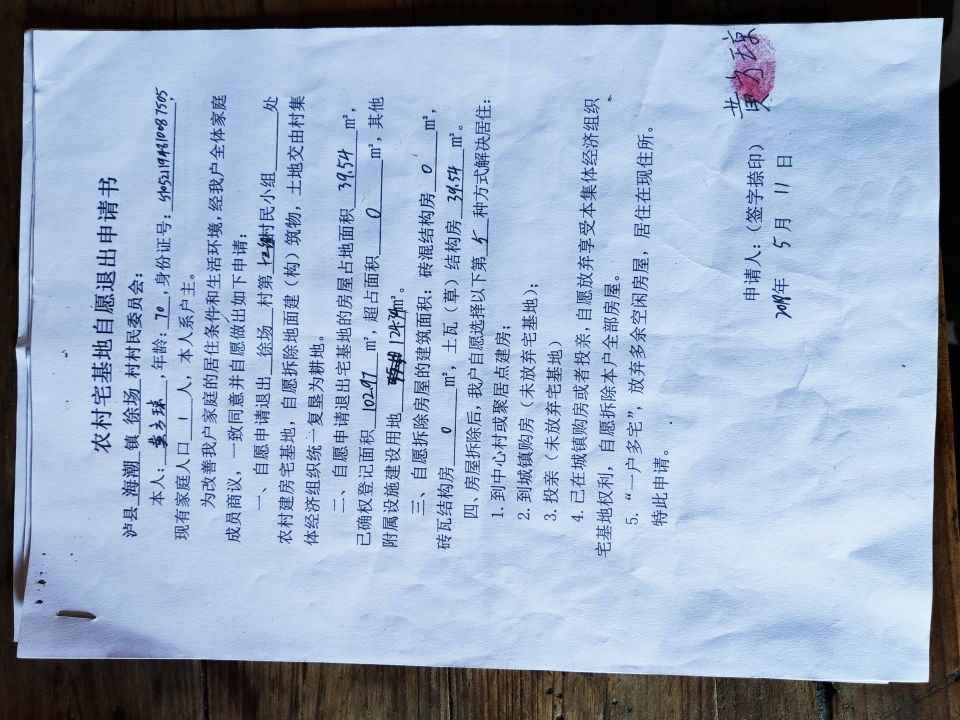 农村宅基地自愿退出申请书
泸县 海潮 镇 徐场 村村民委员会：
本人：，年龄：70，身份证号：，
现有家庭人口 1 人，本人系户主。
为改善我户家庭的居住条件和生活环境，经我户全体家庭
成员商议，一致同意并自愿做出如下申请：
一、自愿申请退出 徐场 村第 村民小组 处
农村建房宅基地，自愿拆除地面建（构）筑物，土地交由村集
体经济组织统一复垦为耕地。
二、自愿申请退出宅基地的房屋占地面积 39.54 ㎡，
已确权登记面积 102.97 ㎡，超占面积 0 ㎡，其他
附属设施建设用地 124.34㎡。
三、自愿拆除房屋的建筑面积：砖混结构房 0 ㎡，
砖瓦结构房 0 ㎡，土瓦（草）结构房 39.54 ㎡。
四、房屋拆除后，我户自愿选择以下第 5 种方式解决居住：
1. 到中心村或聚居点建房；
2. 到城镇购房（未放弃宅基地）；
3. 投亲（未放弃宅基地）
4. 已在城镇购房或者投亲，自愿放弃享受本集体经济组织
宅基地权利，自愿拆除本户全部房屋。
5. “一户多宅”，放弃多余空闲房屋，居住在现住所。
特此申请。
申请人：（签字捺印）
2019年 5 月 11 日